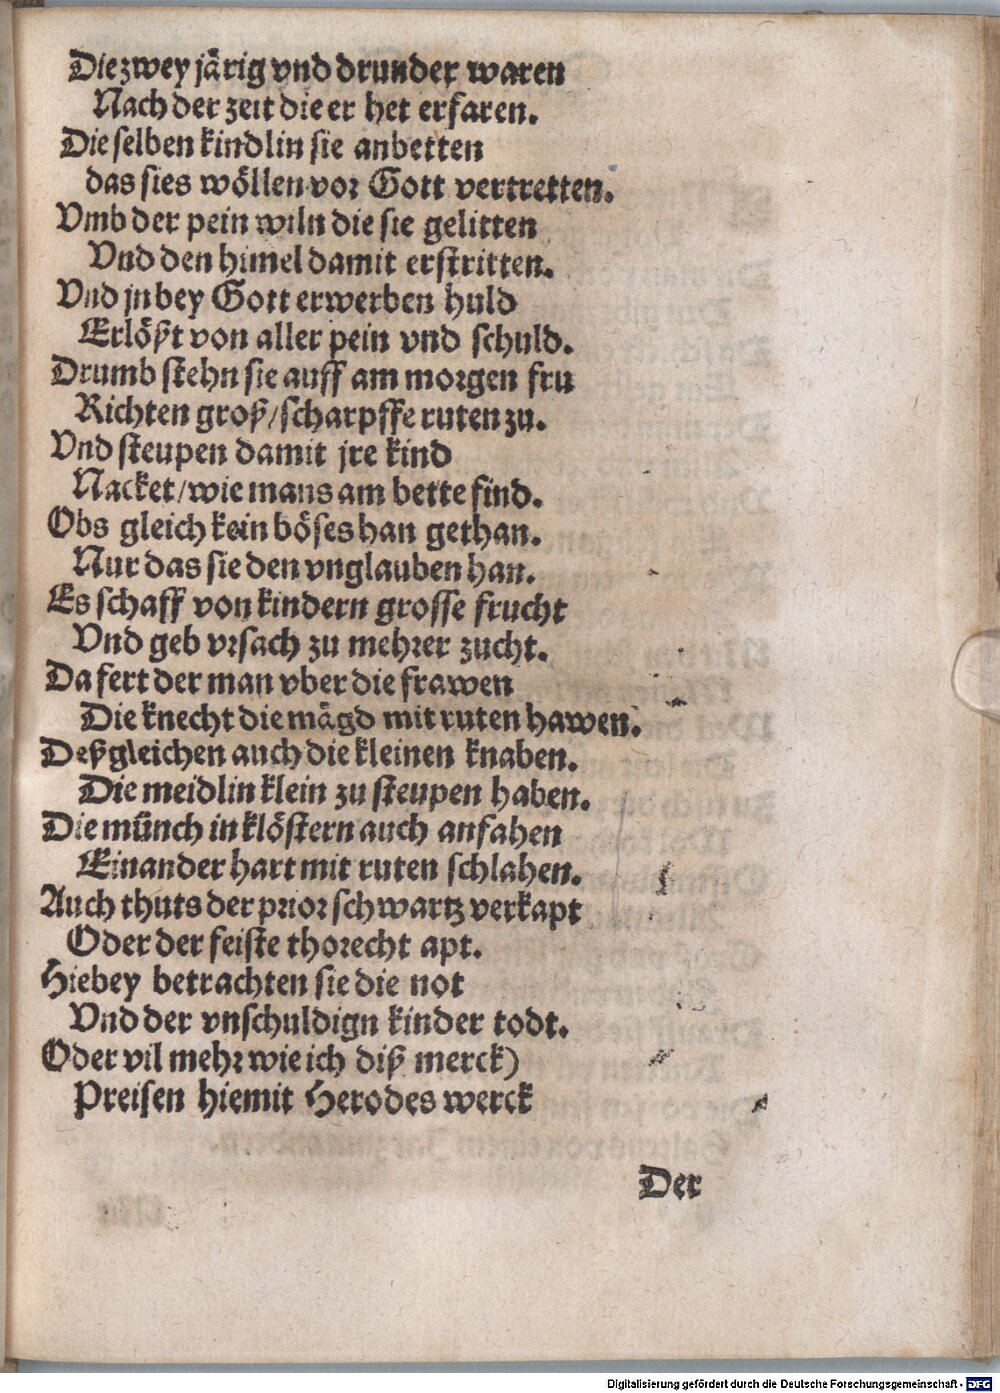 Die zwey järig vnd drunder waren
Nach der zeit die er het erfaren.
Die selben kindlin sie anbetten
das sies wöllen vor Gott vertretten.
Vmb der pein wiln die sie gelitten
Vnd den himel damit erstritten.
Vnd jn bey Gott erwerben huld
Erlößt von aller pein vnd schuld.
Drumb stehn sie auff am morgen fru
Richten groß/scharpffe ruten zu.
Vnd steupen damit jre kind
Nacket/wie mans am bette find.
Obs gleich kein böses han gethan.
Nur das sie den vnglauben han.
Es schaff von kindern grosse frucht
Vnd geb vrsach zu mehrer zucht.
Da fert der man vber die frawen
Die knecht die mägd mit ruten hawen.
Deßgleichen auch die kleinen knaben.
Die meidlin klein zu steupen haben.
Die münch in klöstern auch anfahen
Einander hart mit ruten schlahen.
Auch thuts der prior schwartz verkapt
Oder der feiste thorecht apt.
Hiebey betrachten sie die not
Vnd der vnschuldign kinder todt.
Oder vil mehr wie ich diß merck)
Preisen hiemit Herodes werck
Der
Digitalisierung gefördert durch die Deutsche Forschungsgemeinschaft - DFG